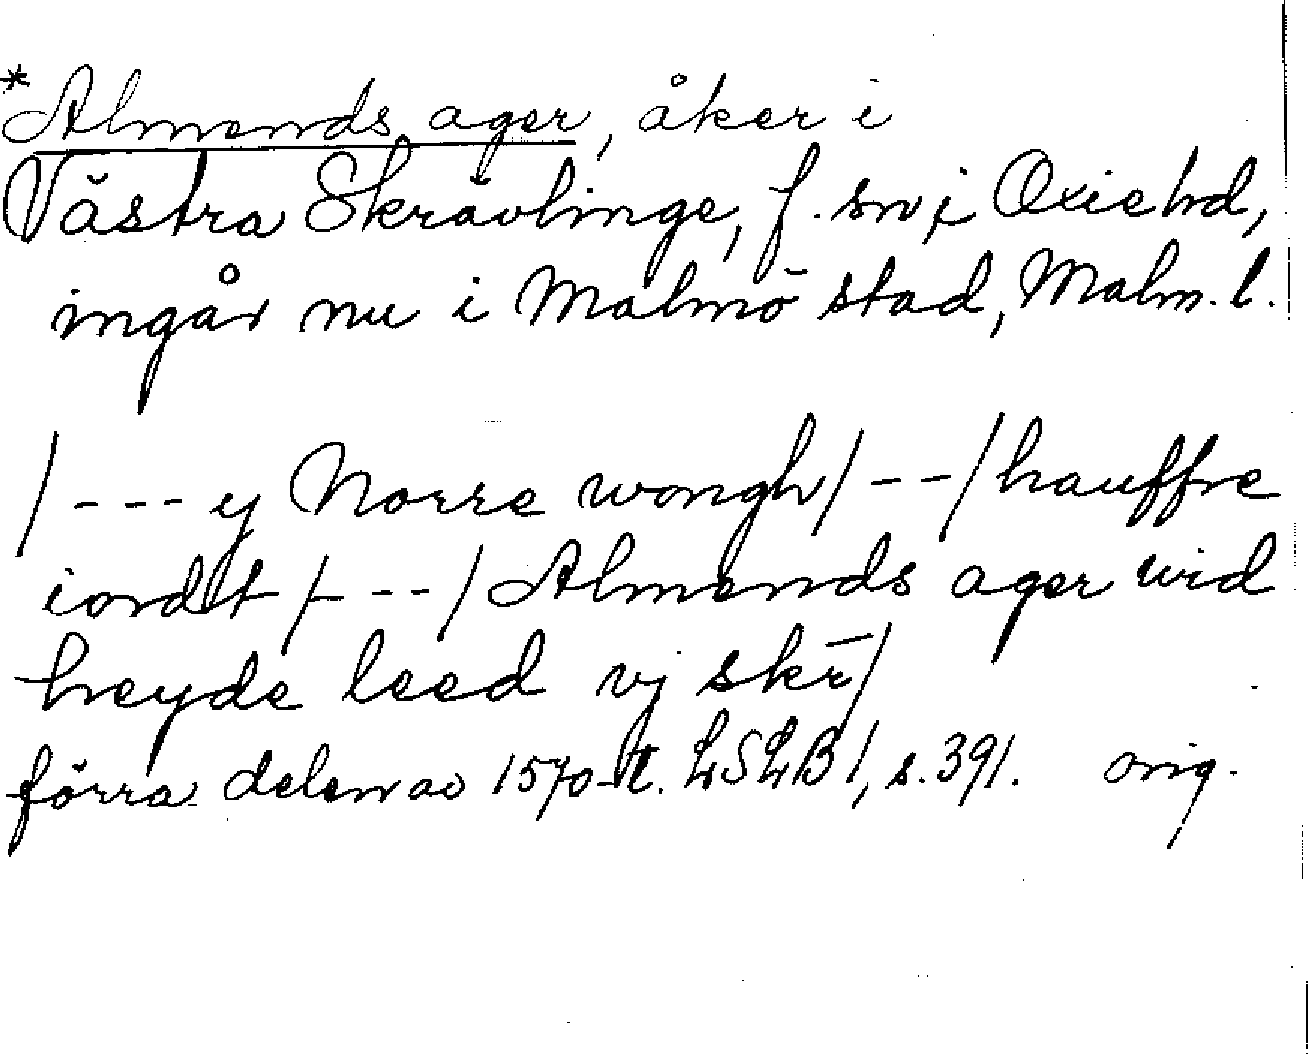 *Almends ager, åker i
Västra Skrävlinge, f. sn i Oxie hd,
ingår nu i Malmö stad, Malm. l.
/---y Norre wongh/--/hauffre
iordt/---/Almends ager wid
heyde leed vj skr̄/
förra delen av 1570-t. LSLB 1, s. 391. orig.